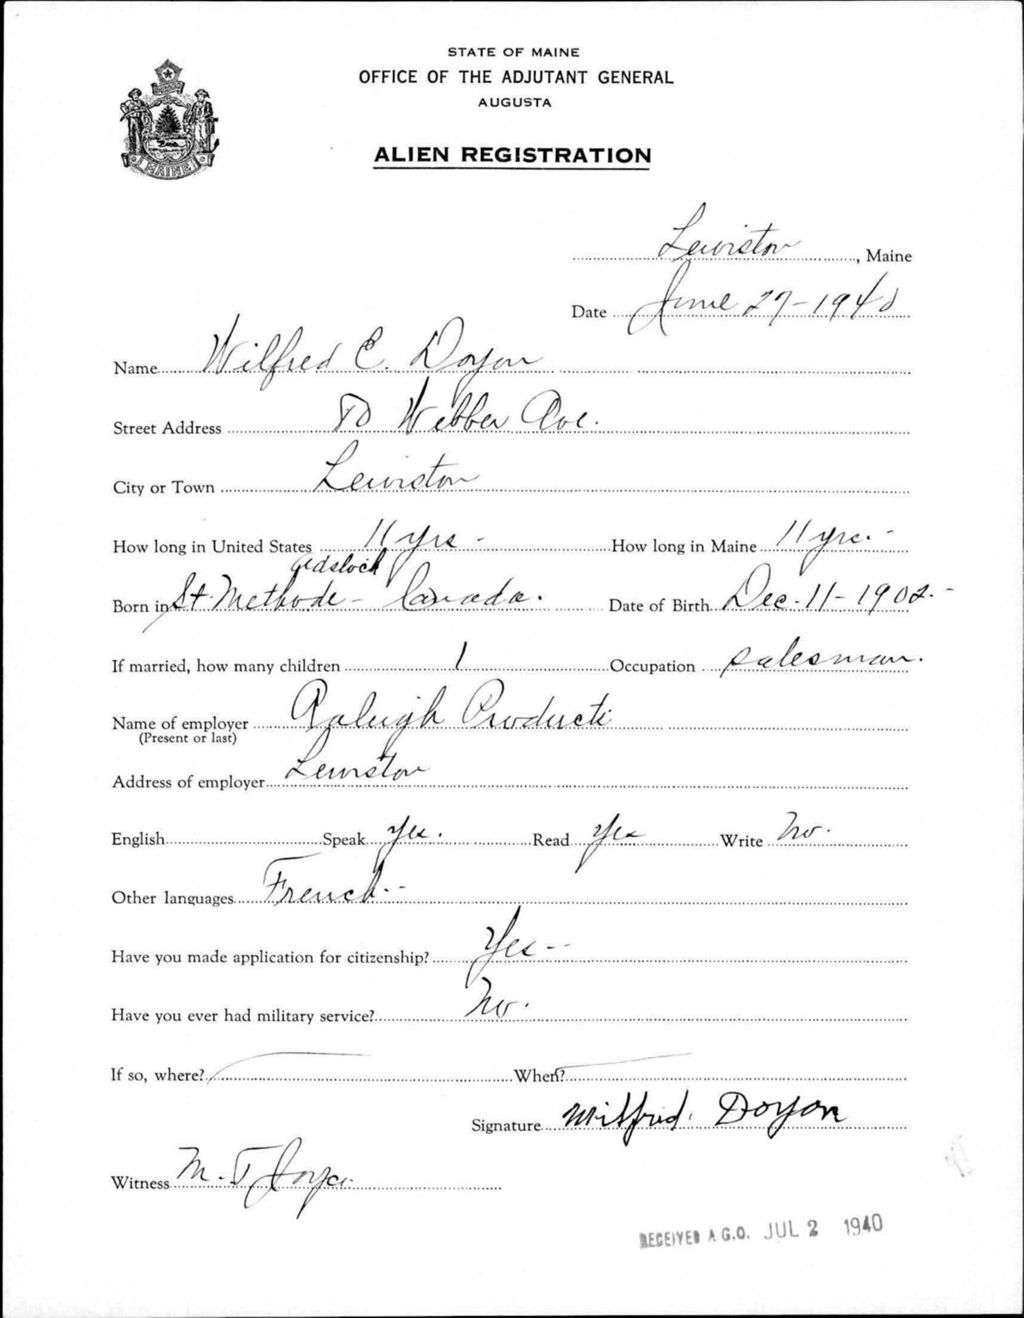 STATE OF MAINE
OFFICE OF THE ADJUTANT GENERAL
AUGUSTA
ALIEN REGISTRATION
MAINE
Lewiston, Maine
Date June 27-1940
Name Wilfred C. Doyon
Street Address Webber Ave.
City or Town Lewiston
How long in United States 11 yrs - How long in Maine 11 yrs. -
Born in St. Methode - Canada. Date of Birth Dec. 11 - 1902. -
If married, how many children 1 Occupation salesman.
Name of employer Raleigh Products
(Present or last)
Address of employer Lewiston
English Speak yes. Read yes Write no.
Other languages French--
Have you made application for citizenship? Yes--
Have you ever had military service? No.
If so, where? When?
Signature Wilfred. Doyon
Witness M. T. Joyce
RECEIVED A.G.O. JUL 2 1940